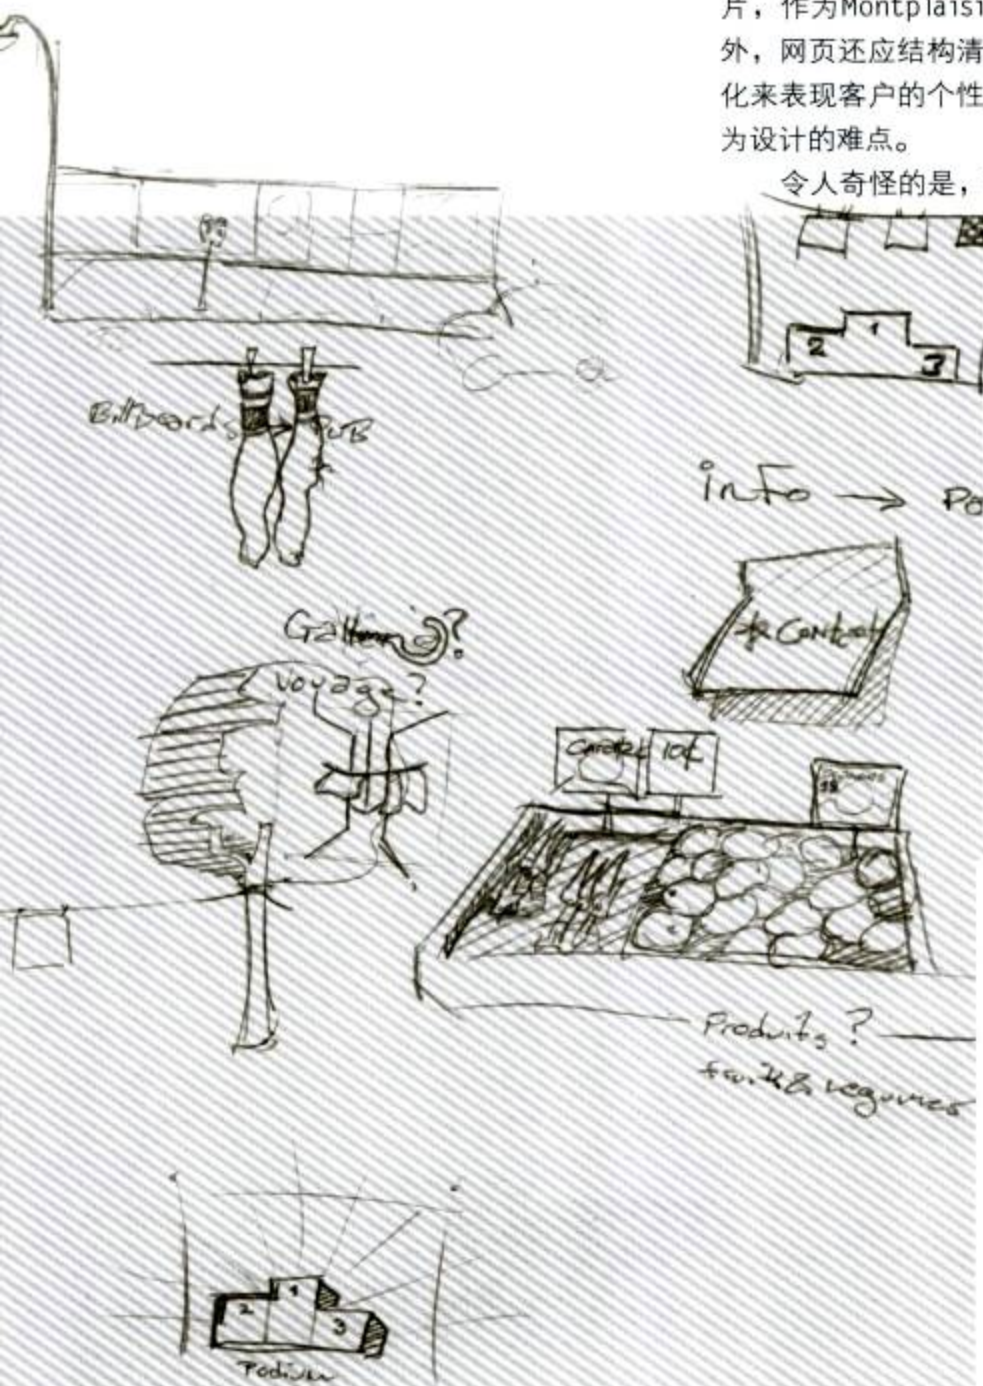 片，作为Montplaisi
外，网页还应结构清
化来表现客户的个性
为设计的难点。
令人奇怪的是，
2 1 3
Billboards → PUB
info → Po
* Contact
voyage?
10¢
Produits ?
fruits & legumes
2 1 3
Podium